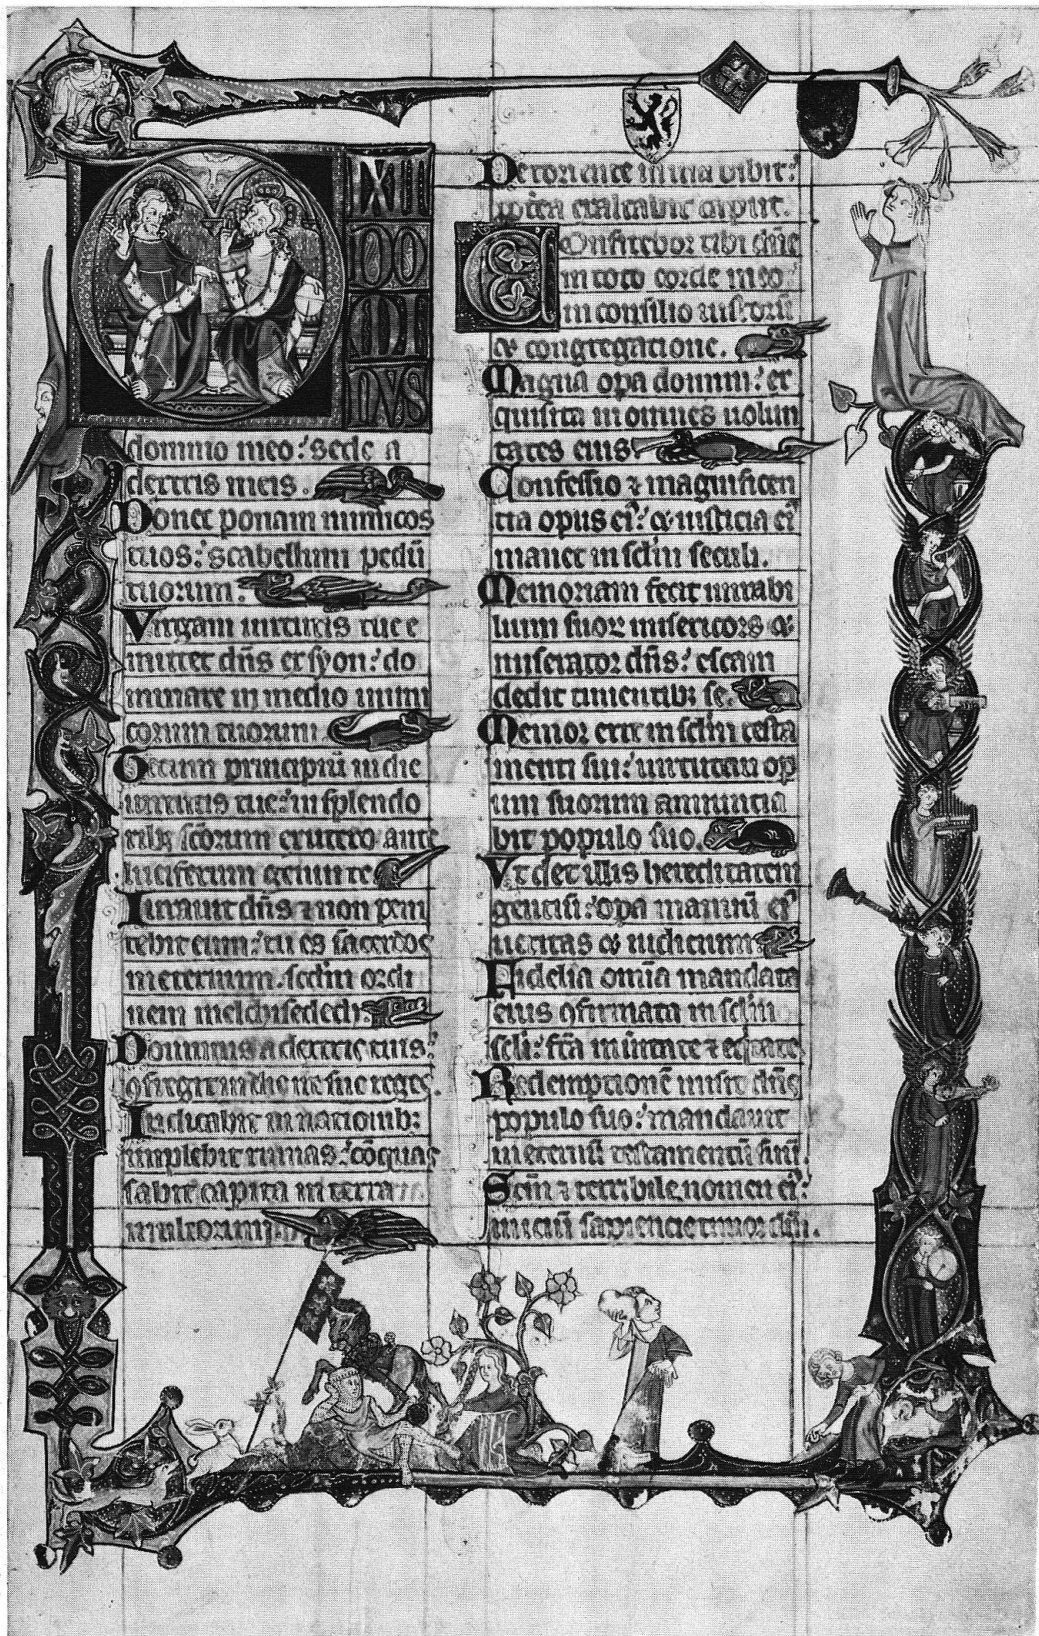 DIXIT
DOMINUS
domino meo: sede a
dextris meis.
Donec ponam inimicos
tuos: scabellum pedū
tuorum.
Virgam uirtutis tue e
mittet dn̄s ex syon: do
minare in medio inimi
corum tuorum.
Tecum principiū in die
uirtutis tue: in splendo
ribꝫ sc̄orum ex utero ante
luciferum genui te
Iurauit dn̄s ⁊ non peni
tebit eum: tu es sacerdos
in eternum. scdm̄ ordi
nem melchisedech
Dominus a dextris tuis:
ꝯfregit in die ire sue reges.
Iudicabit in nationibꝫ
implebit ruinas: cōquas
sabit capita in terra
multorum.
De torrente in uia bibit:
ꝓpterea exaltabit caput.
Confitebor tibi dn̄e
in toto corde meo:
in consilio iustorū
⁊ congregatione.
Magna oꝑa domini: ex
quisita in omnes uolun
tates eius
Confessio ⁊ magnificen
tia opus eiꝰ: ⁊ iusticia eiꝰ
manet in sclm̄ seculi.
Memoriam fecit mirabi
lium suoꝝ misericors ⁊
miserator dn̄s: escam
dedit timentibꝫ se.
Memor erit in sclm̄ testa
menti sui: uirtutem oꝑ
um suorum annuncia
bit populo suo.
Vt det illis hereditatem
gentiū: oꝑa manuū eiꝰ
ueritas ⁊ iudicium
Fidelia omīa mandata
eius ꝯfirmata in sclm̄
scli: fc̄a in ūitate ⁊ eq̄tate.
Redemptionē misit dn̄s
populo suo: mandauit
in eternū testamentū suū.
Scm̄ ⁊ terribile nomen eiꝰ:
iniciū sapiencie timor dn̄i.